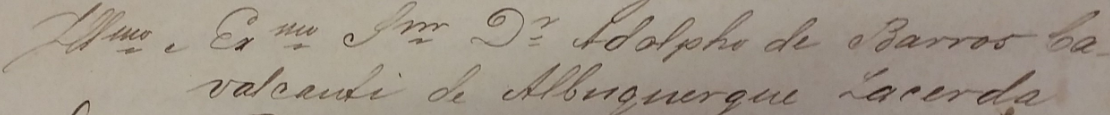 Illmo e Exmo Snr Dr Adolpho de Barros Ca-
valcanti de Albuquerque Lacerda